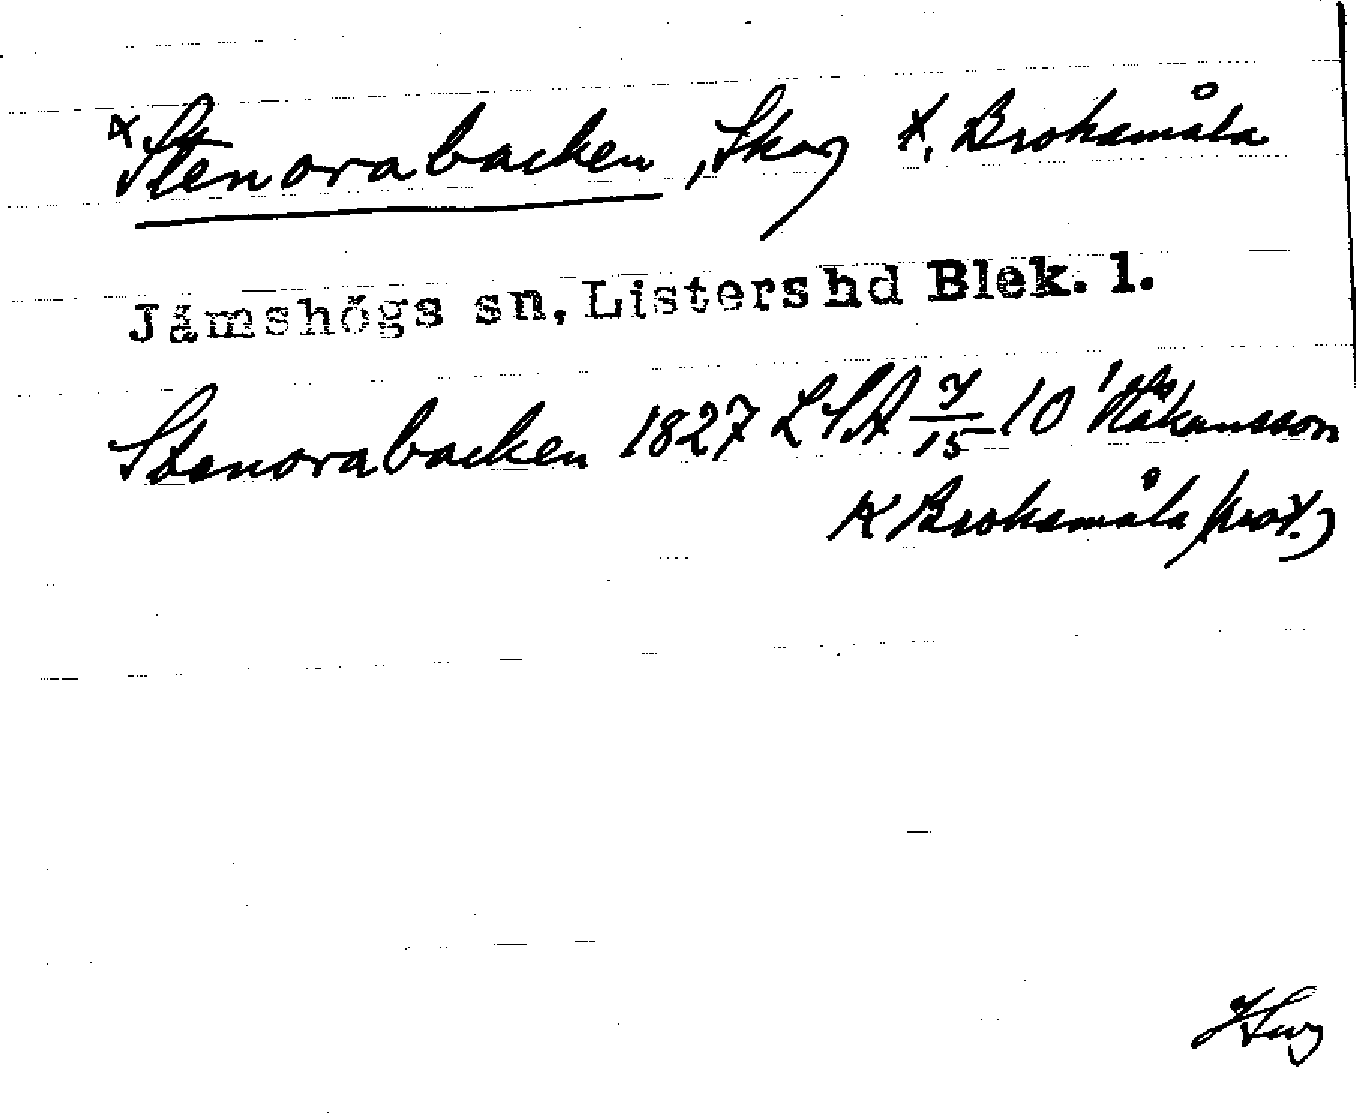 x Stenorabacken, Skog t. Brokamåla
Jämshögs sn, Listers hd Blek. l.
Stenorabacken 1827 LSA 7/15 10 Håkansson
Brokamåla